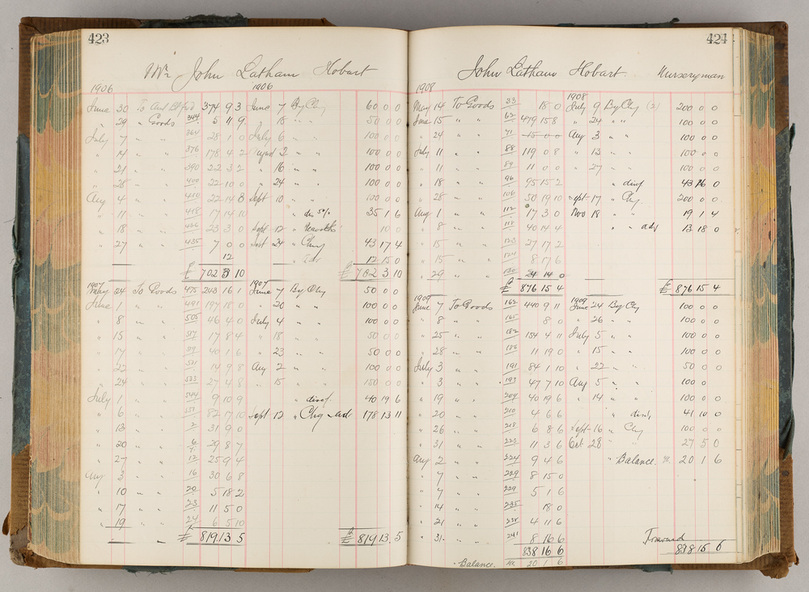 423
Mr John Latham Hobart
1906 1906
June 20 To 374 9 3 June 7 By Chq 60 0 0
29 " Goods 5 11 9 " 15 " " 50 0 0
July 7 " " 28 1 0 July 6 " " 100 0 0
" 14 " " 376 178 4 2 " " 100 0 0
" 21 " " 22 3 2 " 16 " " 100 0 0
" 28 " " 22 10 0 " 24 " " 100 0 0
Aug 4 " " 22 14 8 Sept 10 " " 120 0 0
" 11 " " 17 14 11 " " 5% 35 1 6
" 18 " " 23 3 0 Sept 12 " 10 0
" 27 " " 435 7 0 0 24 " Chq 43 17 4
12 12 15 0
£ 702 3 10 £ 702 3 10
1907 1907
May 24 To Goods 475 203 16 1 June 7 By Chq 50 0 0
June 1 " " 197 15 0 " 20 " " 100 0 0
" 8 " " 505 46 4 0 July 4 " " 100 0 0
" 15 " " 17 8 4 " 15 " " 50 0 0
" 17 " " " 23 " " 50 0 0
" 22 " " 14 9 8 Aug 2 " " 100 0 0
" 24 " " 27 4 8 " 15 " " 150 0 0
July 1 " " 9 10 9 " disct 40 19 6
" 6 " " 82 17 10 Sept 12 " Chq " 178 13 11
" 13 " " 31 9 0
" 20 " " 29 8 7
" 27 " " 25 9 4
Aug 3 " " 16 30 6 8
" 10 " " 20 5 18 2
" 17 " " 23 11 5 0
" 19 " " 6 5 10
£ 819 13 5 £ 819 13 5
424
John Latham Hobart Nurseryman
1908 1908
May 14 To Goods 33 15 0 July 9 By Chq 200 0 0
June 15 " " 62 479 15 8 " 24 " " 100 0 0
" 24 " " 71 15 0 0 Aug 3 " " 100 0 0
July 11 " " 88 119 0 8 " 13 " " 100 0 0
" 11 " " 89 11 0 0 " 27 " " 100 0 0
" 18 " " 96 95 15 2 " disct 43 16 0
" 28 " " 106 50 19 10 Sept 17 " Chq 200 0 0
Aug 1 " " 112 17 3 0 Nov 18 " " 19 1 4
" 8 " " 40 14 4 " " 13 18 0
" 15 " " 123 27 17 2
" 15 " " 124 8 17 6
" 29 " " 24 14 0
£ 876 15 4 £ 876 15 4
1909 1909
June 7 To Goods 162 440 9 11 June 24 By Chq 100 0 0
" 8 " " 165 8 0 " 26 " " 100 0 0
" 25 " " 182 154 4 0 July 5 " " 100 0 0
" 28 " " 11 19 0 " 15 " " 100 0 0
July 3 " " 191 84 1 10 " 22 " " 50 0 0
" 3 " " 197 47 7 10 Aug 5 " " 100 0 0
" 19 " " 207 40 19 6 " 14 " " 100 0 0
" 20 " " 210 4 6 6 " disct 41 10 0
" 26 " " 218 6 8 6 Sept 16 " Chq 100 0 0
" 31 " " 11 3 6 Oct 28 " " 27 5 0
Aug 2 " " 224 9 4 6 " Balance 20 1 6
" 7 " " 229 8 15 0
" 7 " " 229 5 1 6
" 14 " " 235 18 0
" 21 " " 4 11 6
" 31 " " 241 8 16 6 Forward
838 16 6 838 16 6
" Balance 20 1 6